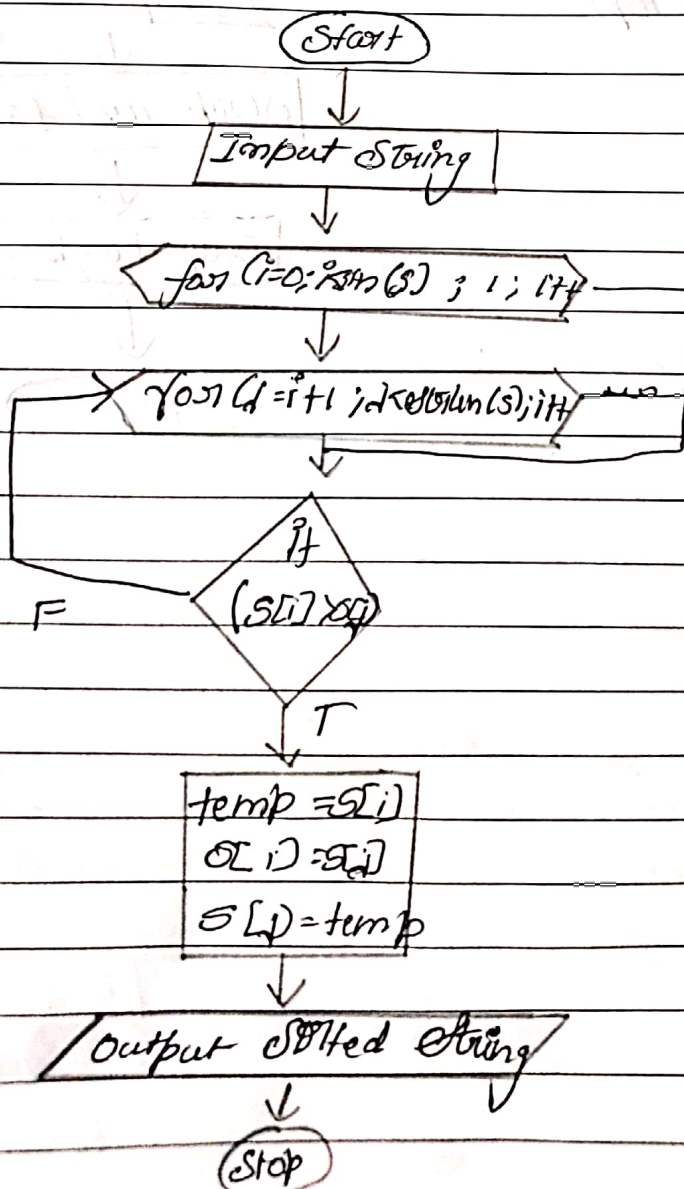 Start
Input String
for (i=0; i<strln(s) ; i ; i++
for (j=i+1 ; j<strlen(s); i++
if
(s[i]>s[j])
F
T
temp = s[i]
s[i] = s[j]
s[j] = temp
Output Sorted String
Stop